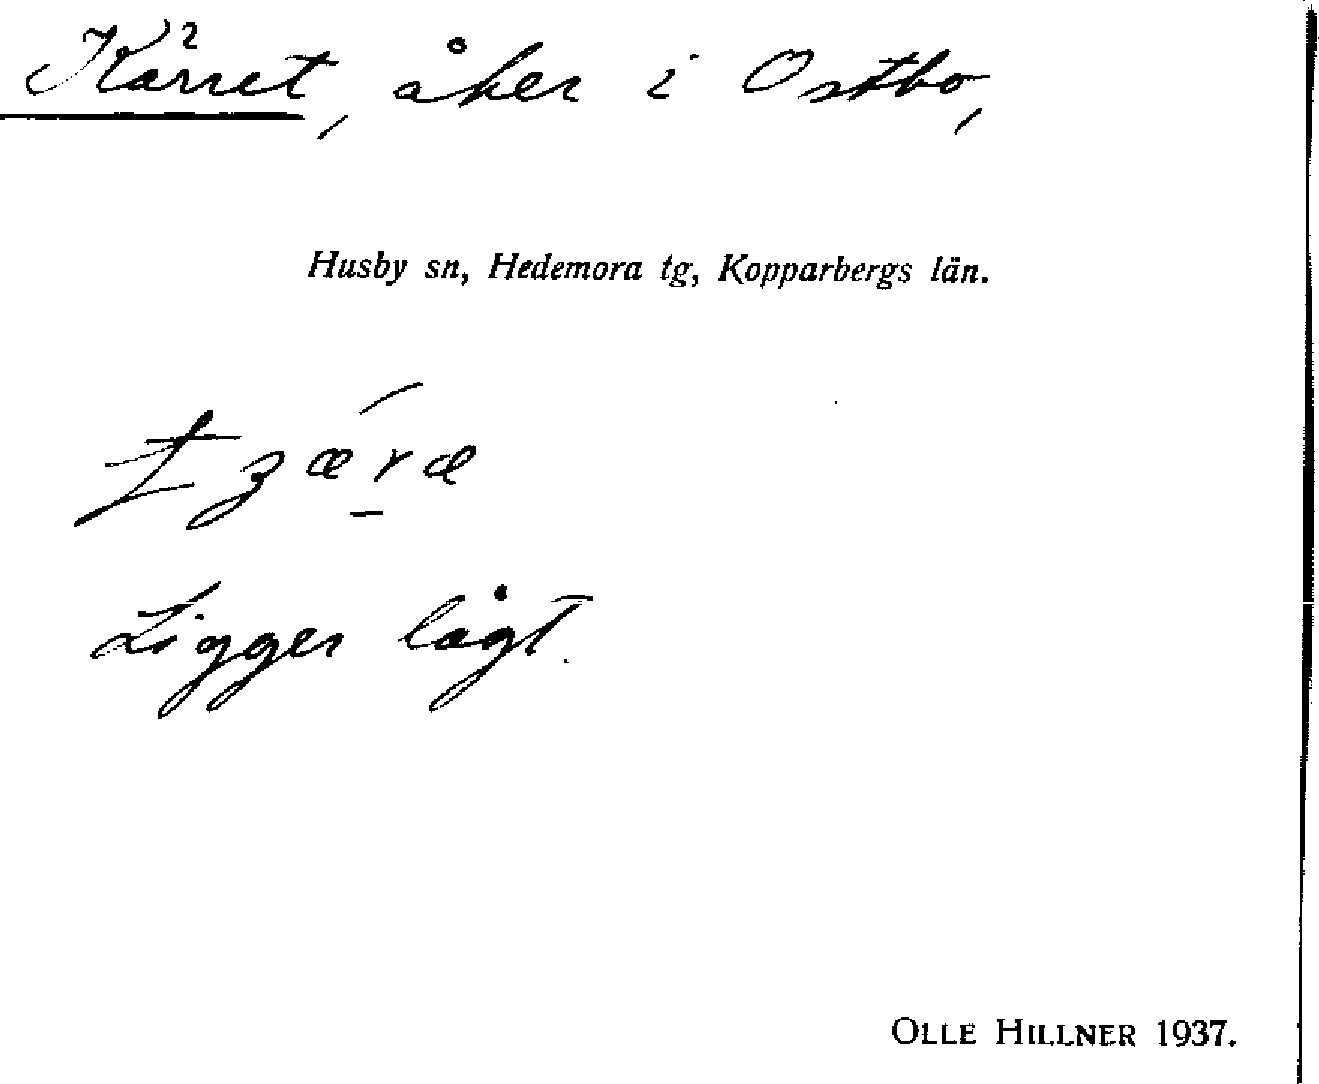 Kärret, åker i Ostbo,
Husby sn, Hedemora tg, Kopparbergs län.
Ligger lågt.
OLLE HILLNER 1937.